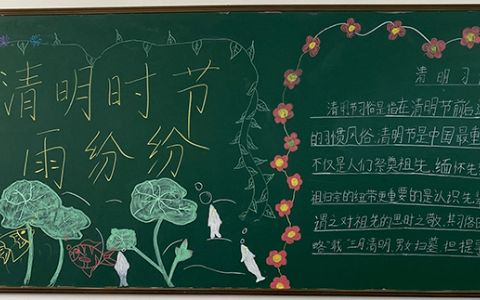 清明时节
雨纷纷
清明习
清明节习俗是指在清明节前后
的习惯风俗,清明节是中国最重
不仅是人们祭奠祖先,缅怀先
祖归宗的纽带更重要的是认识先
谓之对祖先的思时之敬,其习俗
略"我"三月清明,男女扫墓,担提